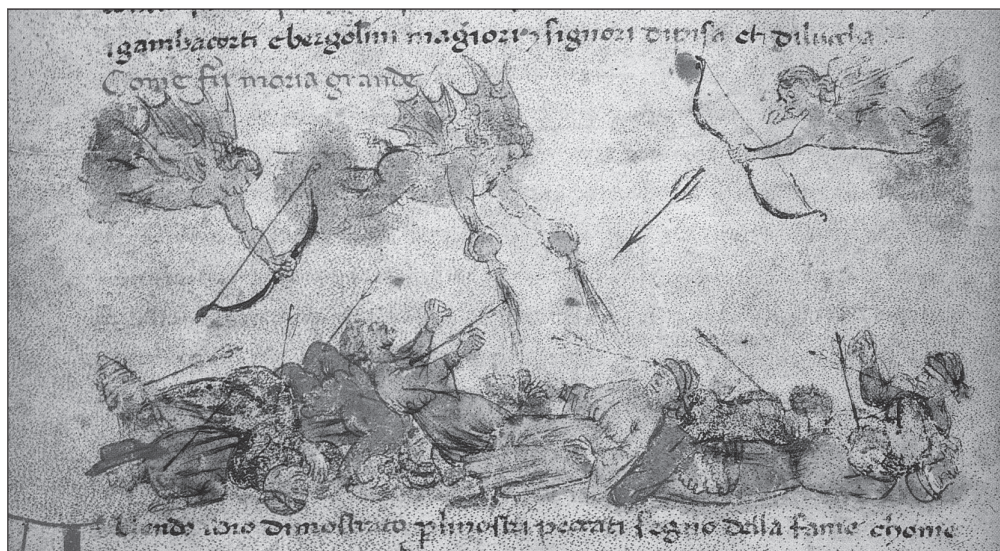 gambacorti e bergolini magiori signori di pisa et di luccha
Come fu moria grande
dio dimostrato p li nostri peccati segno della fame chome